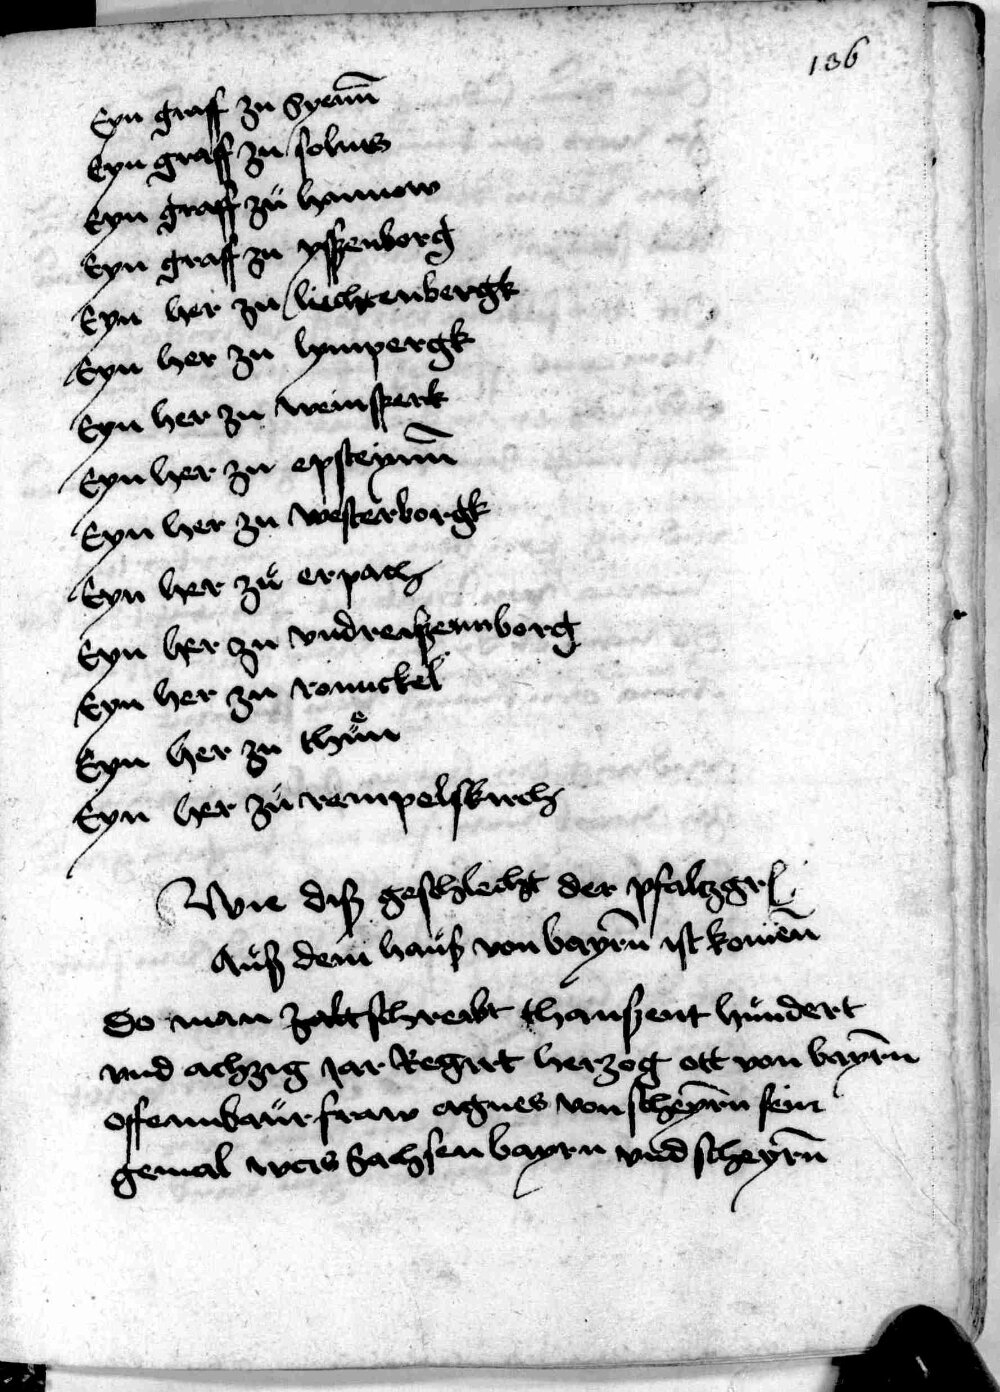 136
Eyn graff zu Syenn̄
Eyn graff zu solms
Eyn graff zů hannow
Eyn graff zu yssenborg
Eyn her zu liechtenbergk
Eyn her zu lympergk
Eyn her zu weinsperk
Eyn her zu epsteynn̄
Eyn her zu westerborgk
Eyn her zů erpach
Eyn her zu vndreiszennborg
Eyn her zu ronnckel
Eyn her zu thůn
Eyn her zů rempelskirch
Wie disz geschlecht der pfaltzgr
Aůsz dem haůsz von bayrn̄ ist komen̄
Do man zalt schreibt thauszent hůndert
vnd achzig jar Regirt herzog ott von bayrn̄
offennbaůr fraw agnes von scheyrn̄ sein
gemal was Sachsen bayrn vnd scheyrn̄